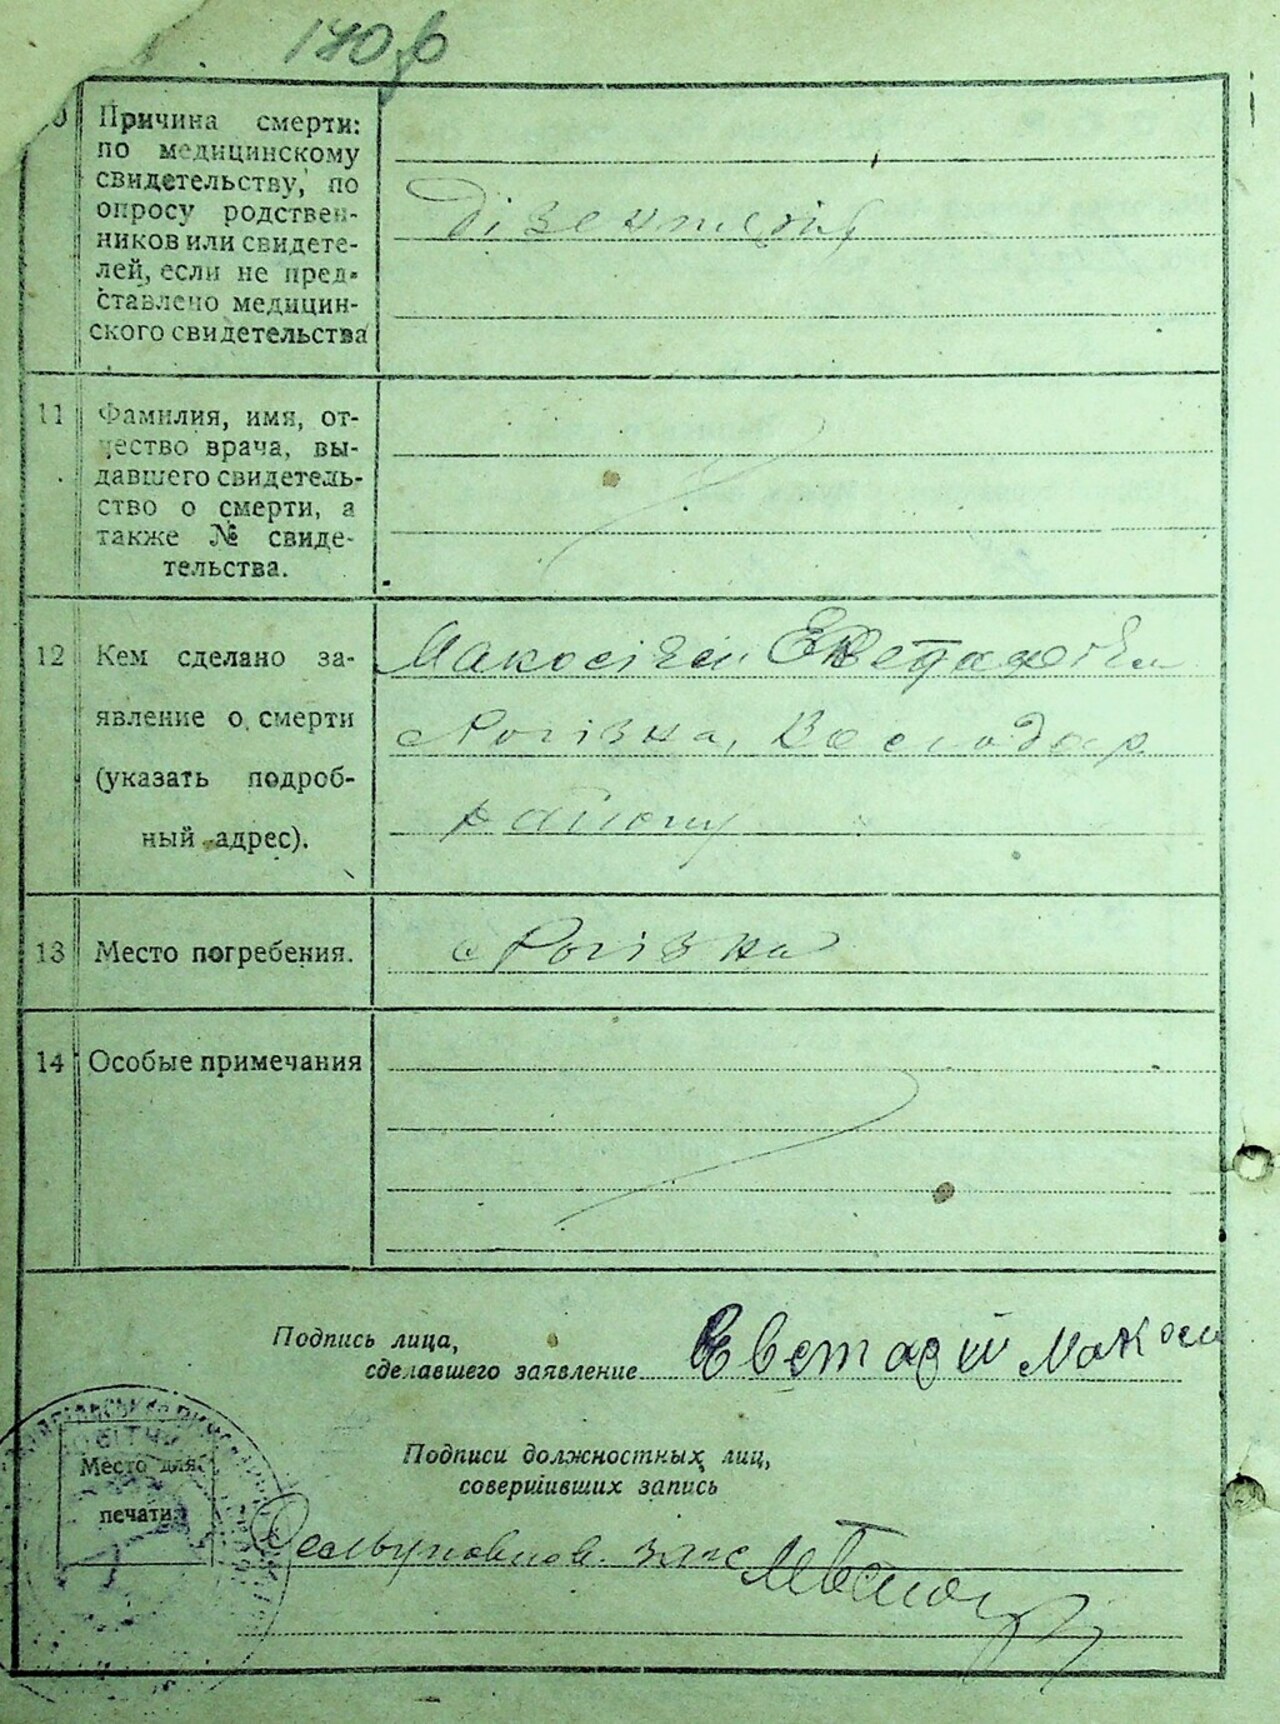 170 об
Причина смерти:
по медицинскому
свидетельству, по
опросу родствен-
ников или свидете-
лей, если не пред-
ставлено медицин-
ского свидетельства
Дізентерія
11 Фамилия, имя, от-
чество врача, вы-
давшего свидетель-
ство о смерти, а
также № свиде-
тельства.
12 Кем сделано за-
явление о смерти
(указать подроб-
ный адрес).
с Рогізна,
району
13 Место погребения.
с Рогізна
14 Особые примечания
Подпись лица,
сделавшего заявление
Евстафій
Подписи должностных лиц,
совершивших запись
Место для
печати